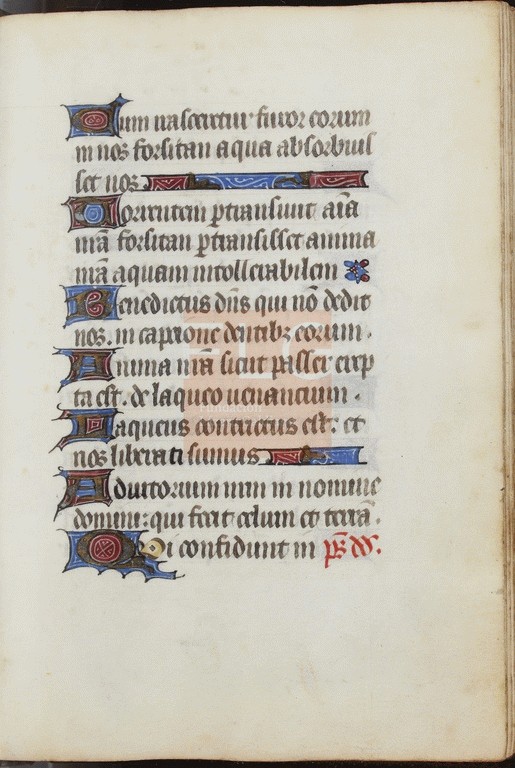 Cum nasceretur furor eorum
in nos forsitan aqua absorbuis
set nos
Torrentem ptransiuit aīa
nr̄a forsitan ptransisset anima
nr̄a aquam intollerabilem
Benedictus dn̄s qui nō dedit
nos. in captione dentibꝫ eorum.
Anima nr̄a sicut passer erep
ta est. de laqueo uenantium.
Laqueus contritus est: et
nos liberati sumus
Adiutorium nrm̄ in nomine
domini: qui fecit celum et terrā.
Qui confidunt in ps̄ dd̄.
Fundación